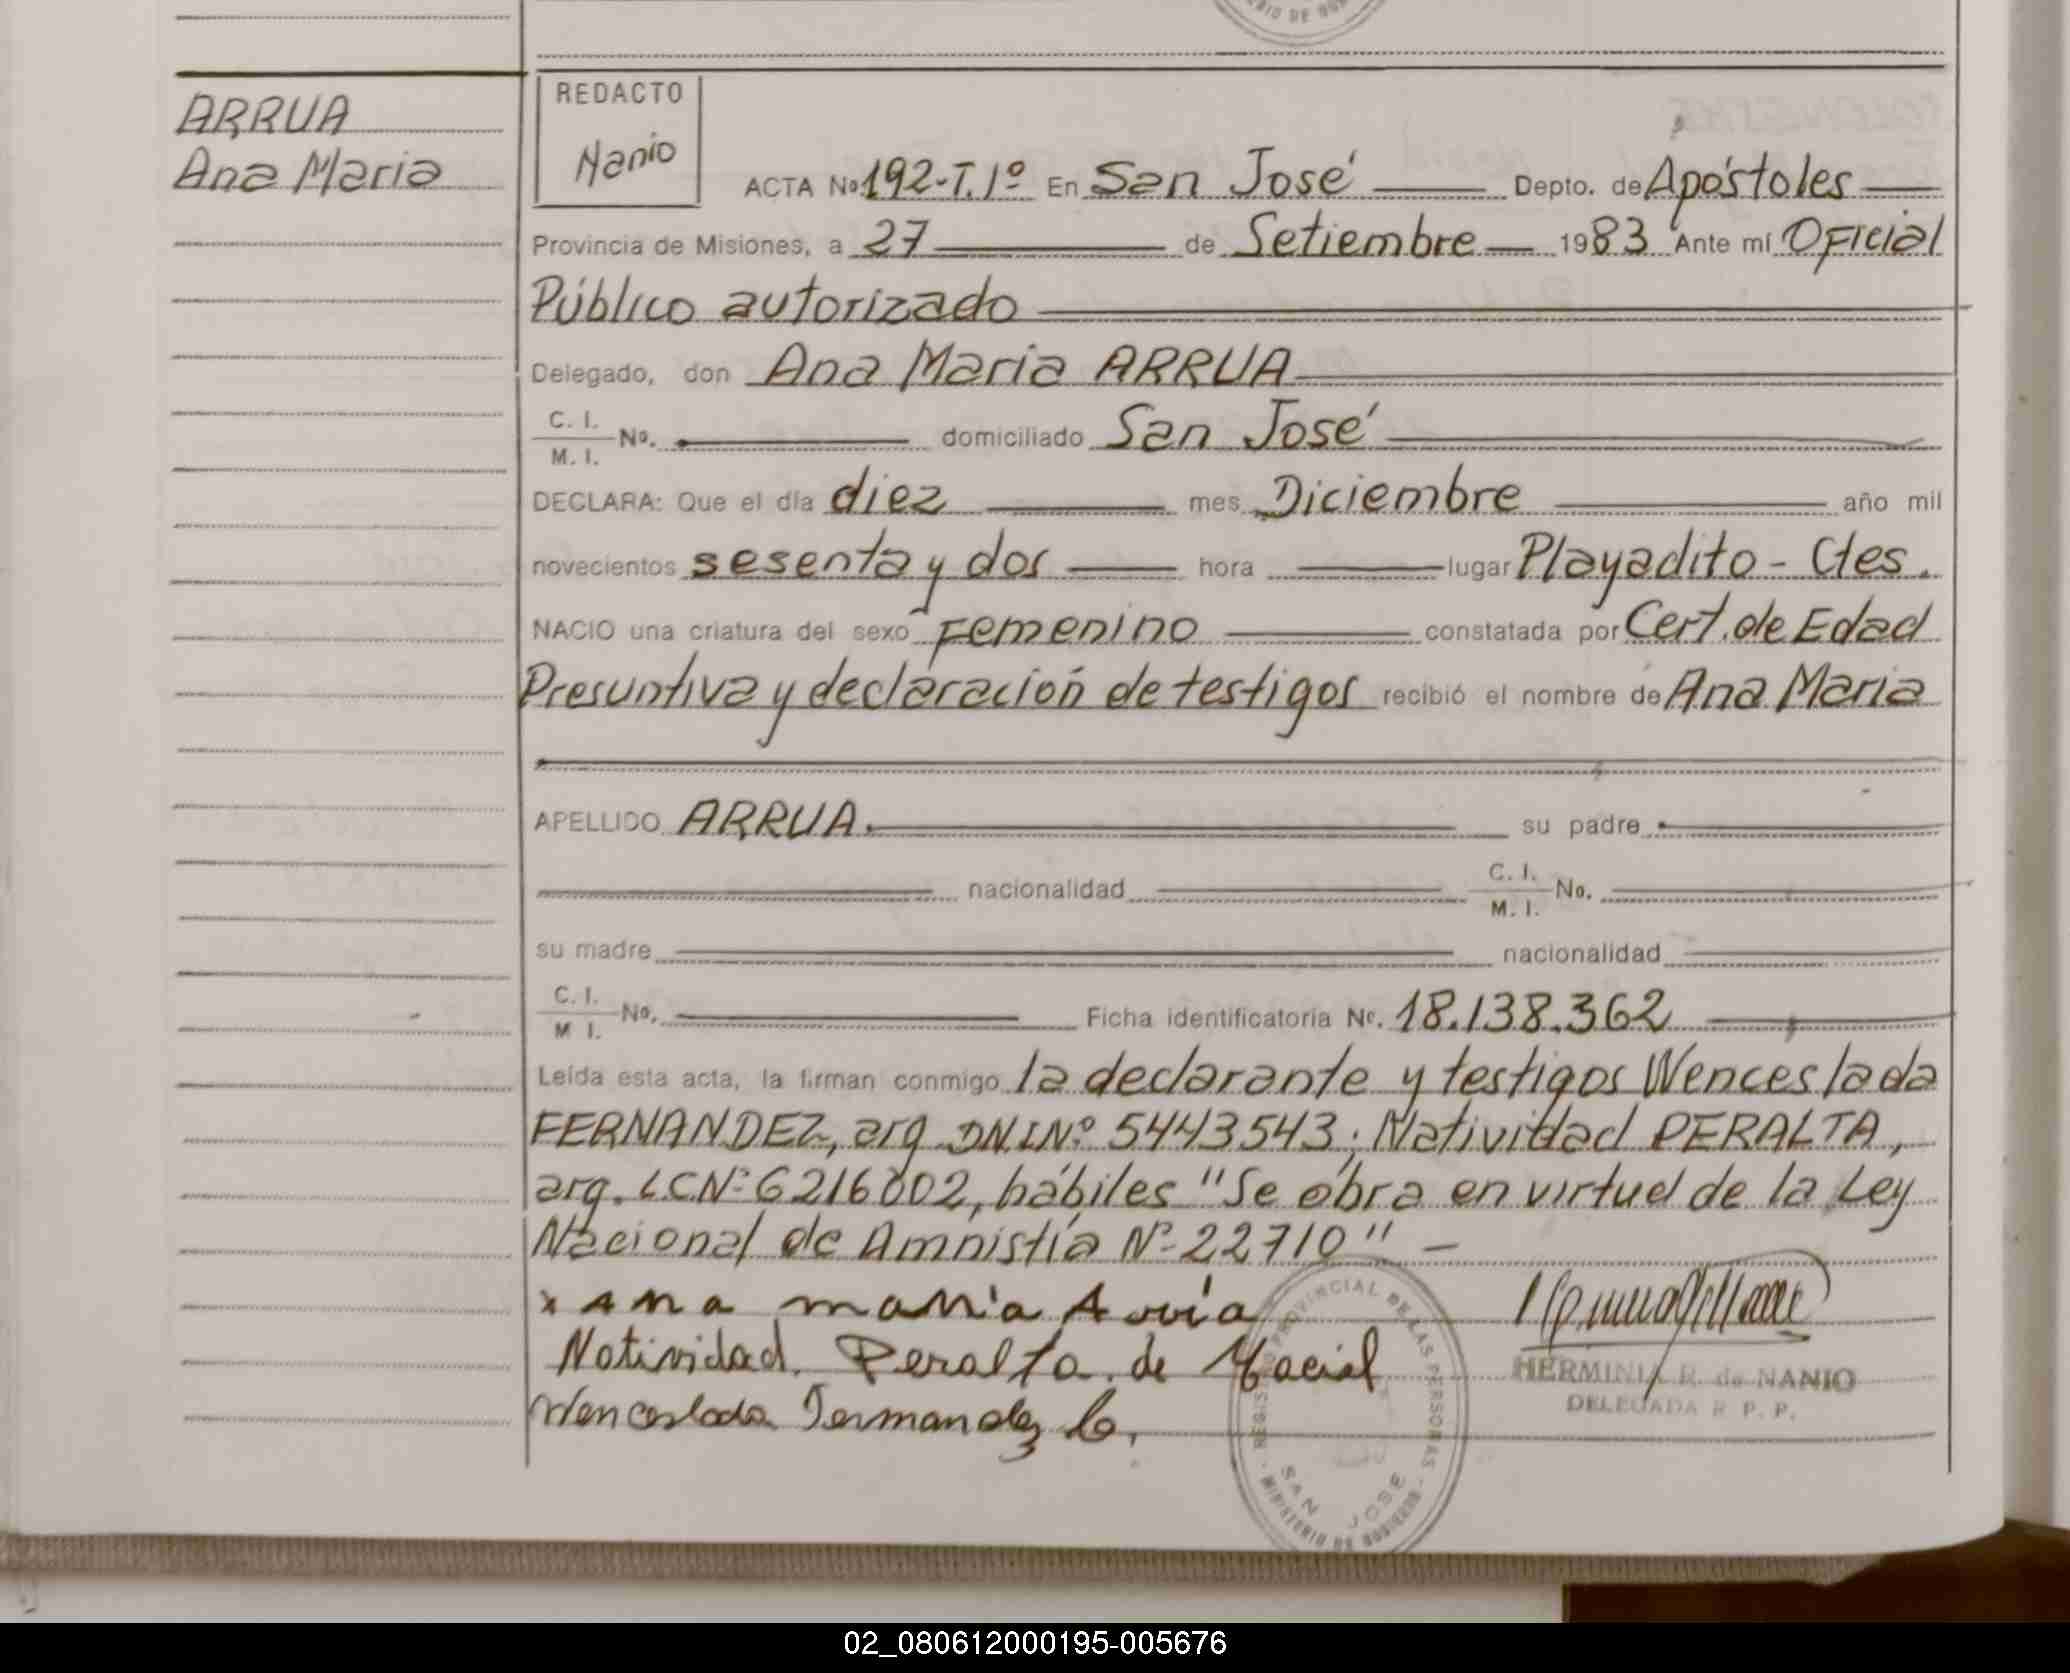 ERIO DE GOB
ARRUA
Ana Maria
REDACTO
Nanio
ACTA Nº 192-T.1º En San José Depto. de Apóstoles
Provincia de Misiones, a 27 de Setiembre 1983 Ante mí Oficial
Público autorizado
Delegado, don Ana Maria ARRUA
C. I.
M. I. No. domiciliado San José
DECLARA: Que el día diez mes Diciembre año mil
novecientos sesenta y dos hora lugar Playadito - Ctes.
NACIO una criatura del sexo Femenino constatada por Cert. de Edad
Presuntiva y declaración de testigos recibió el nombre de Ana Maria
APELLIDO ARRUA. su padre
nacionalidad C. I.
M. I. No.
su madre nacionalidad
C. I.
M I. No. Ficha identificatoria No. 18.138.362
Leída esta acta, la firman conmigo la declarante y testigos Wenceslada
FERNANDEZ, arg. DN.I.Nº 5443543; Natividad PERALTA,
arg. L.C.Nº 6216002, hábiles "Se obra en virtud de la Ley
Nacional de Amnistía Nº 22710" -
x Ana maria Arrúa
Natividad Peralta de Macial
Wenceslada Fernandez
HERMINIA R. de NANIO
DELEGADA R. P. P.
REGISTRO PROVINCIAL DE LAS PERSONAS
SAN JOSE
MINISTERIO DE GOBIERNO
02_080612000195-005676